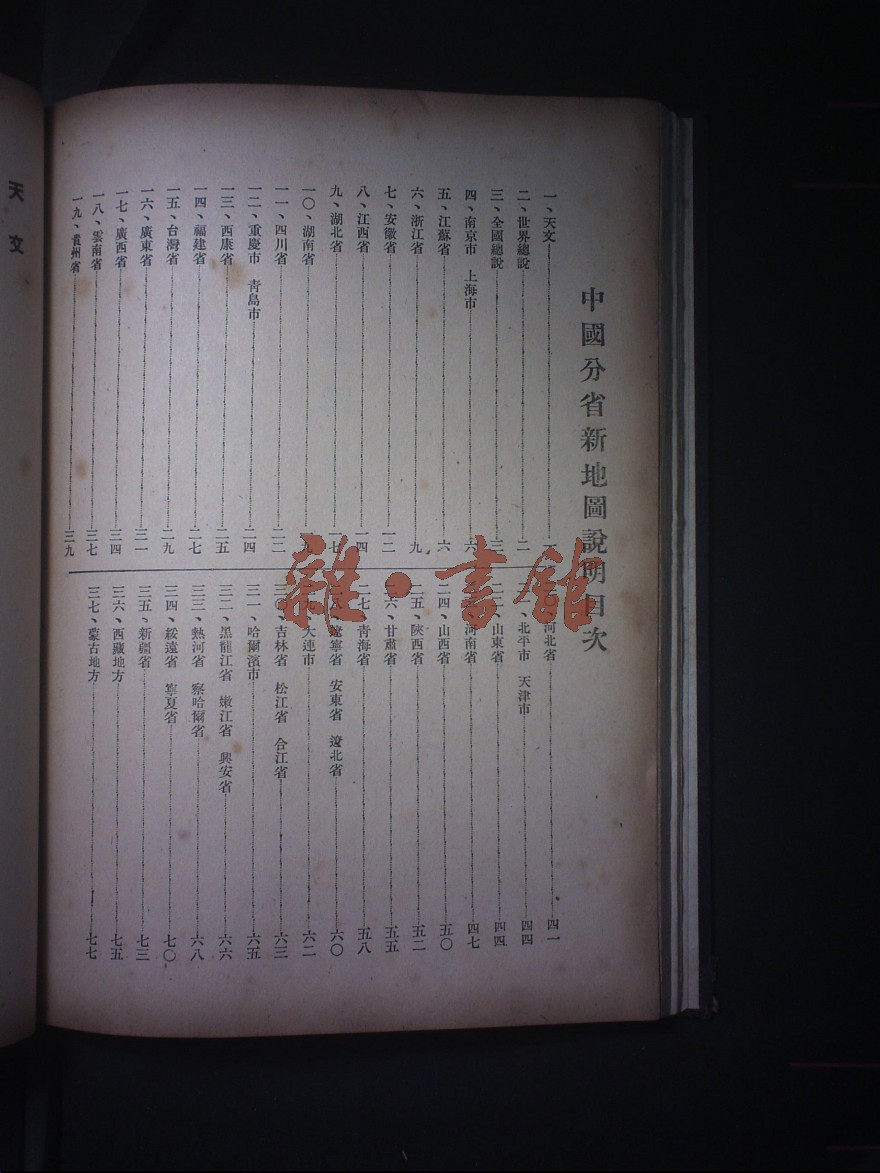 中國分省新地圖說明目次
一、天文 一
二、世界總說 二
三、全國總說 三
四、南京市 上海市 六
五、江蘇省 六
六、浙江省 九
七、安徽省 一二
八、江西省 一四
九、湖北省 一七
一〇、湖南省 一九
一一、四川省 二二
一二、重慶市 青島市 二四
一三、西康省 二五
一四、福建省 二七
一五、台灣省 二九
一六、廣東省 三一
一七、廣西省 三四
一八、雲南省 三七
一九、貴州省 三九
河北省 四一
、北平市 天津市 四四
、山東省 四四
河南省 四七
二四、山西省 五〇
二五、陝西省 五二
二六、甘肅省 五五
二七、青海省 五八
遼寧省 安東省 遼北省 六〇
大連市 六二
三〇、吉林省 松江省 合江省 六三
三一、哈爾濱市 六五
三二、黑龍江省 嫩江省 興安省 六六
三三、熱河省 察哈爾省 六八
三四、綏遠省 寧夏省 七〇
三五、新疆省 七三
三六、西藏地方 七五
三七、蒙古地方 七七
天文
雜·書館